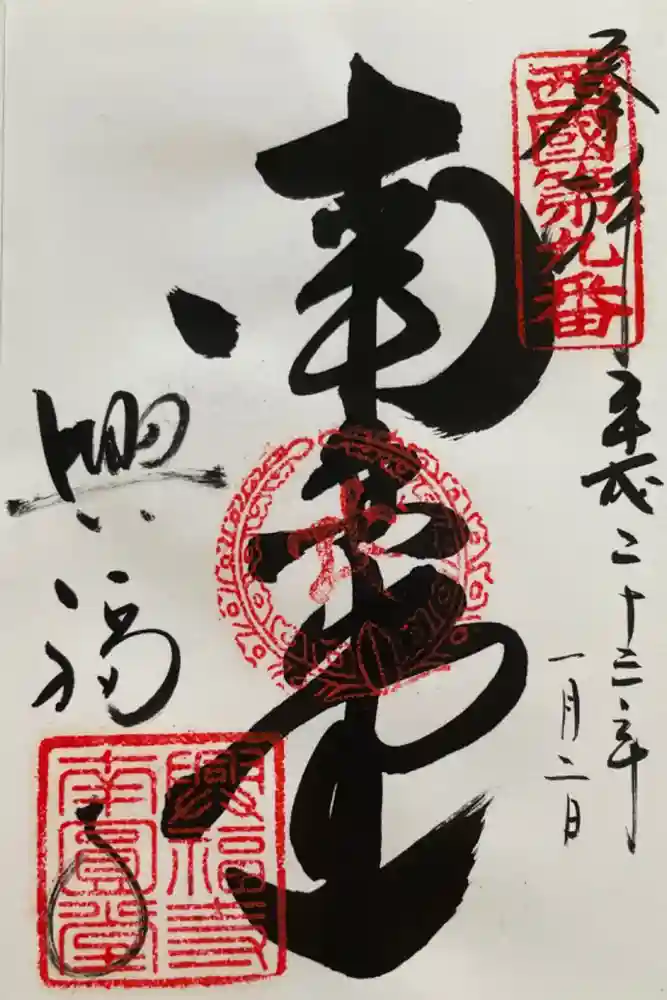 奉拝
西國第九番
平成二十三年
一月二日
南円堂
興福寺
興福寺
南圓堂